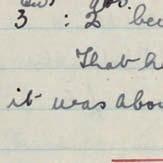 3 : 2 be
That h
it was abo